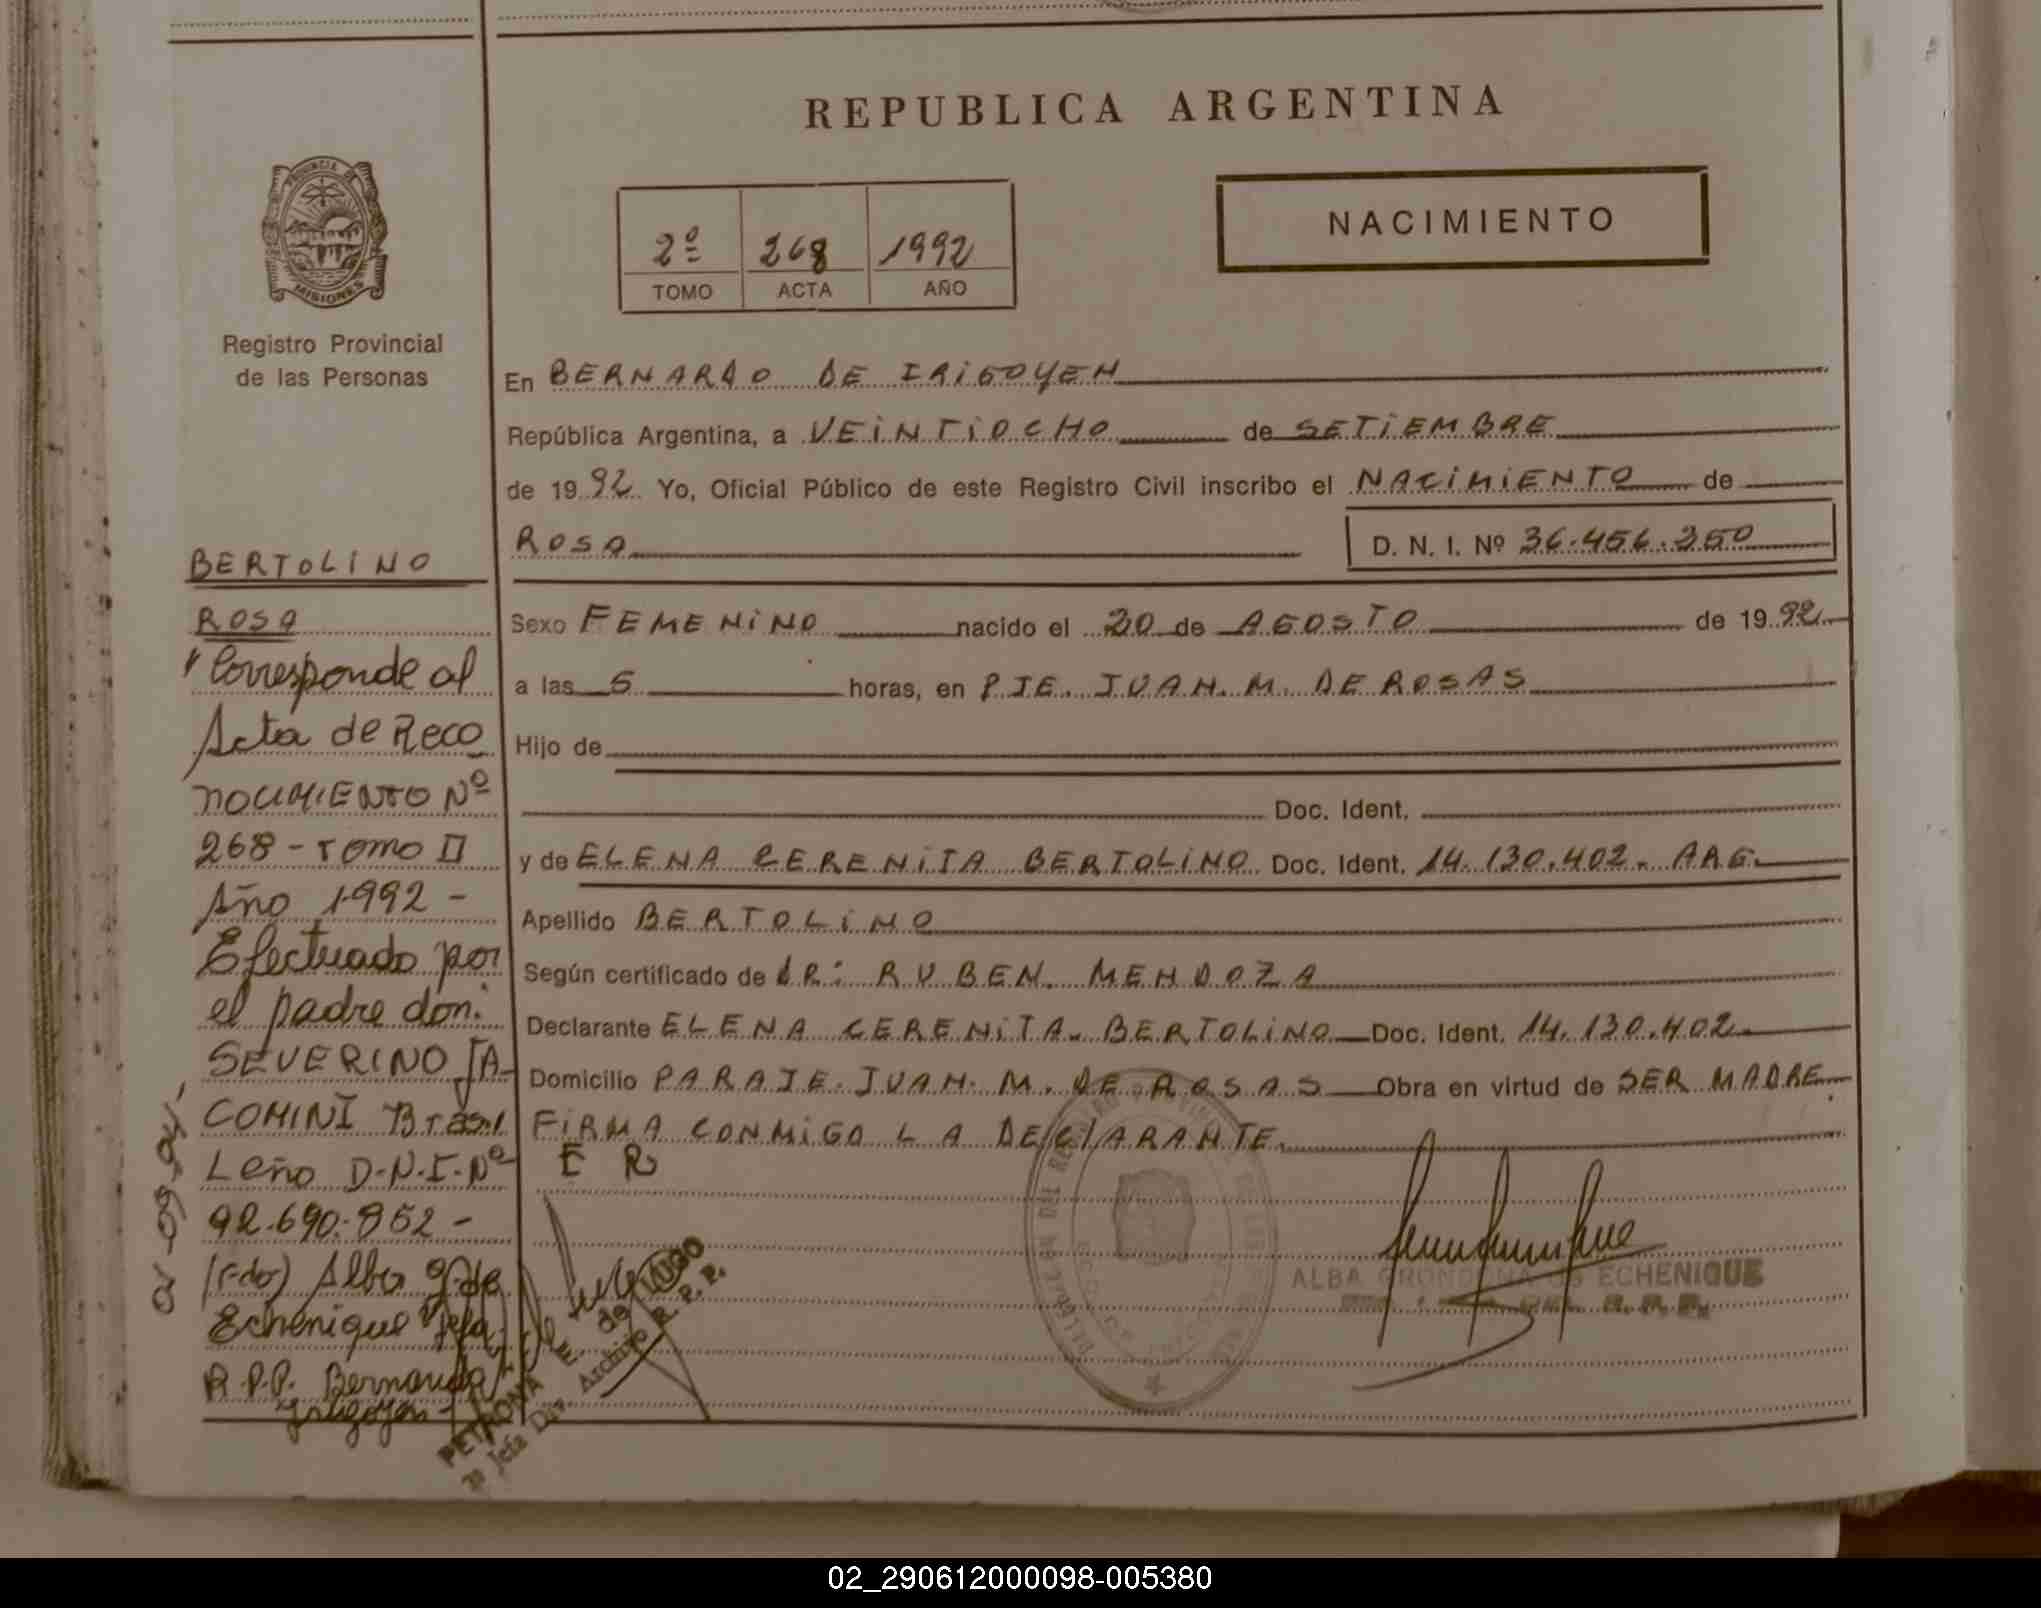 REPUBLICA ARGENTINA
PROVINCIA DE MISIONES
Registro Provincial
de las Personas
2º 268 1992
TOMO ACTA AÑO
NACIMIENTO
En BERNARDO DE IRIGOYEN
República Argentina, a VEINTIOCHO de SETIEMBRE
de 1992 Yo, Oficial Público de este Registro Civil inscribo el NACIMIENTO de
ROSA D. N. I. Nº 36.456.350
Sexo FEMENINO nacido el 20 de AGOSTO de 1992
a las 5 horas, en PJE. JUAN. M. DE ROSAS
Hijo de
Doc. Ident.
y de ELENA CERENITA BERTOLINO Doc. Ident. 14.130.402. ARG.
Apellido BERTOLINO
Según certificado de DR: RUBEN. MENDOZA
Declarante ELENA CERENITA BERTOLINO Doc. Ident. 14.130.402
Domicilio PARAJE JUAN. M. DE ROSAS Obra en virtud de SER MADRE.
FIRMA CONMIGO LA DECLARANTE.
E R
BERTOLINO
ROSA
"Corresponde al
Acta de Reco
nocimiento Nº
268 - Tomo II
Año 1992 -
Efectuado por
el padre don:
SEVERINO JA-
COMINI Brasi
Leño D.N.I. Nº
92.690.852 -
(Fdo) Alba G. de
Echenique Jefa
R.P.P. Bernardo
Irigoyen -
PETRONA E. de LUGO
Jefa Div. Archivo R. P. P.
ALBA GRONDONA DE ECHENIQUE
02_290612000098-005380